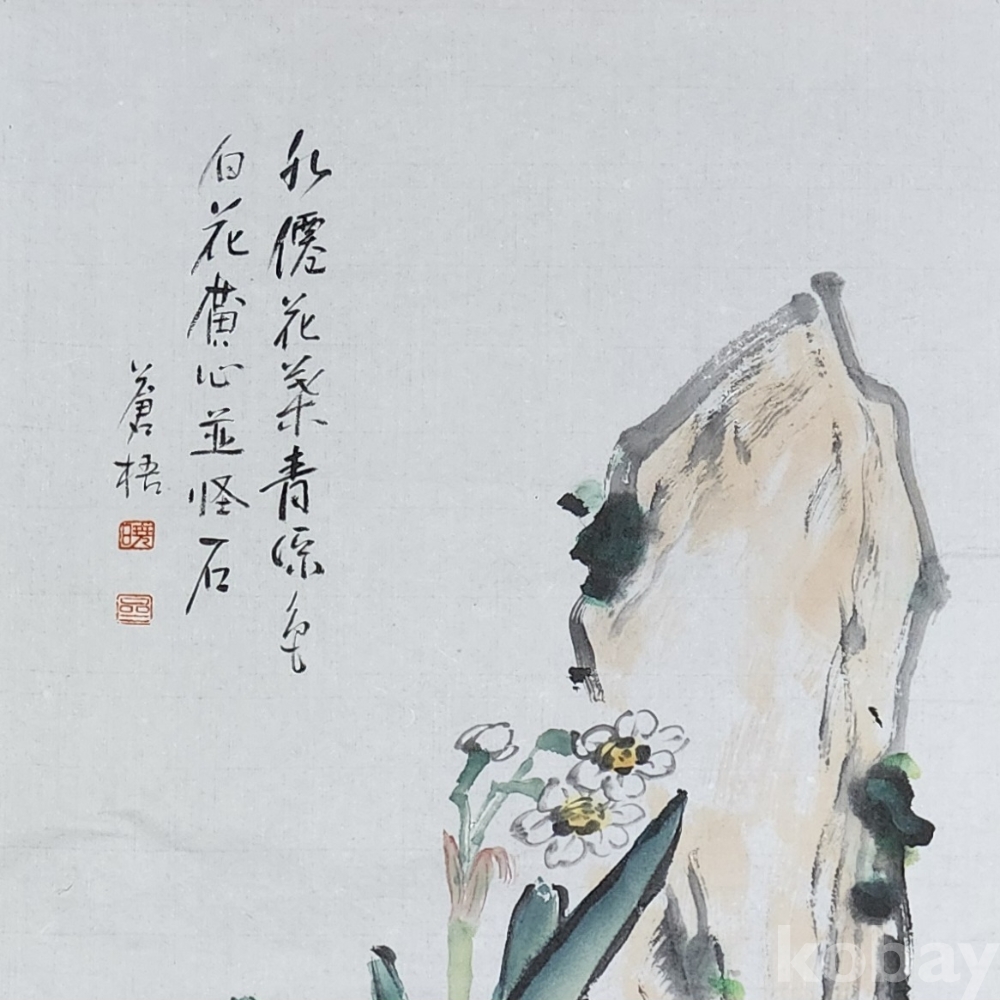 水僊花葉青深色
白花黃心並怪石
蒼梧
kobay